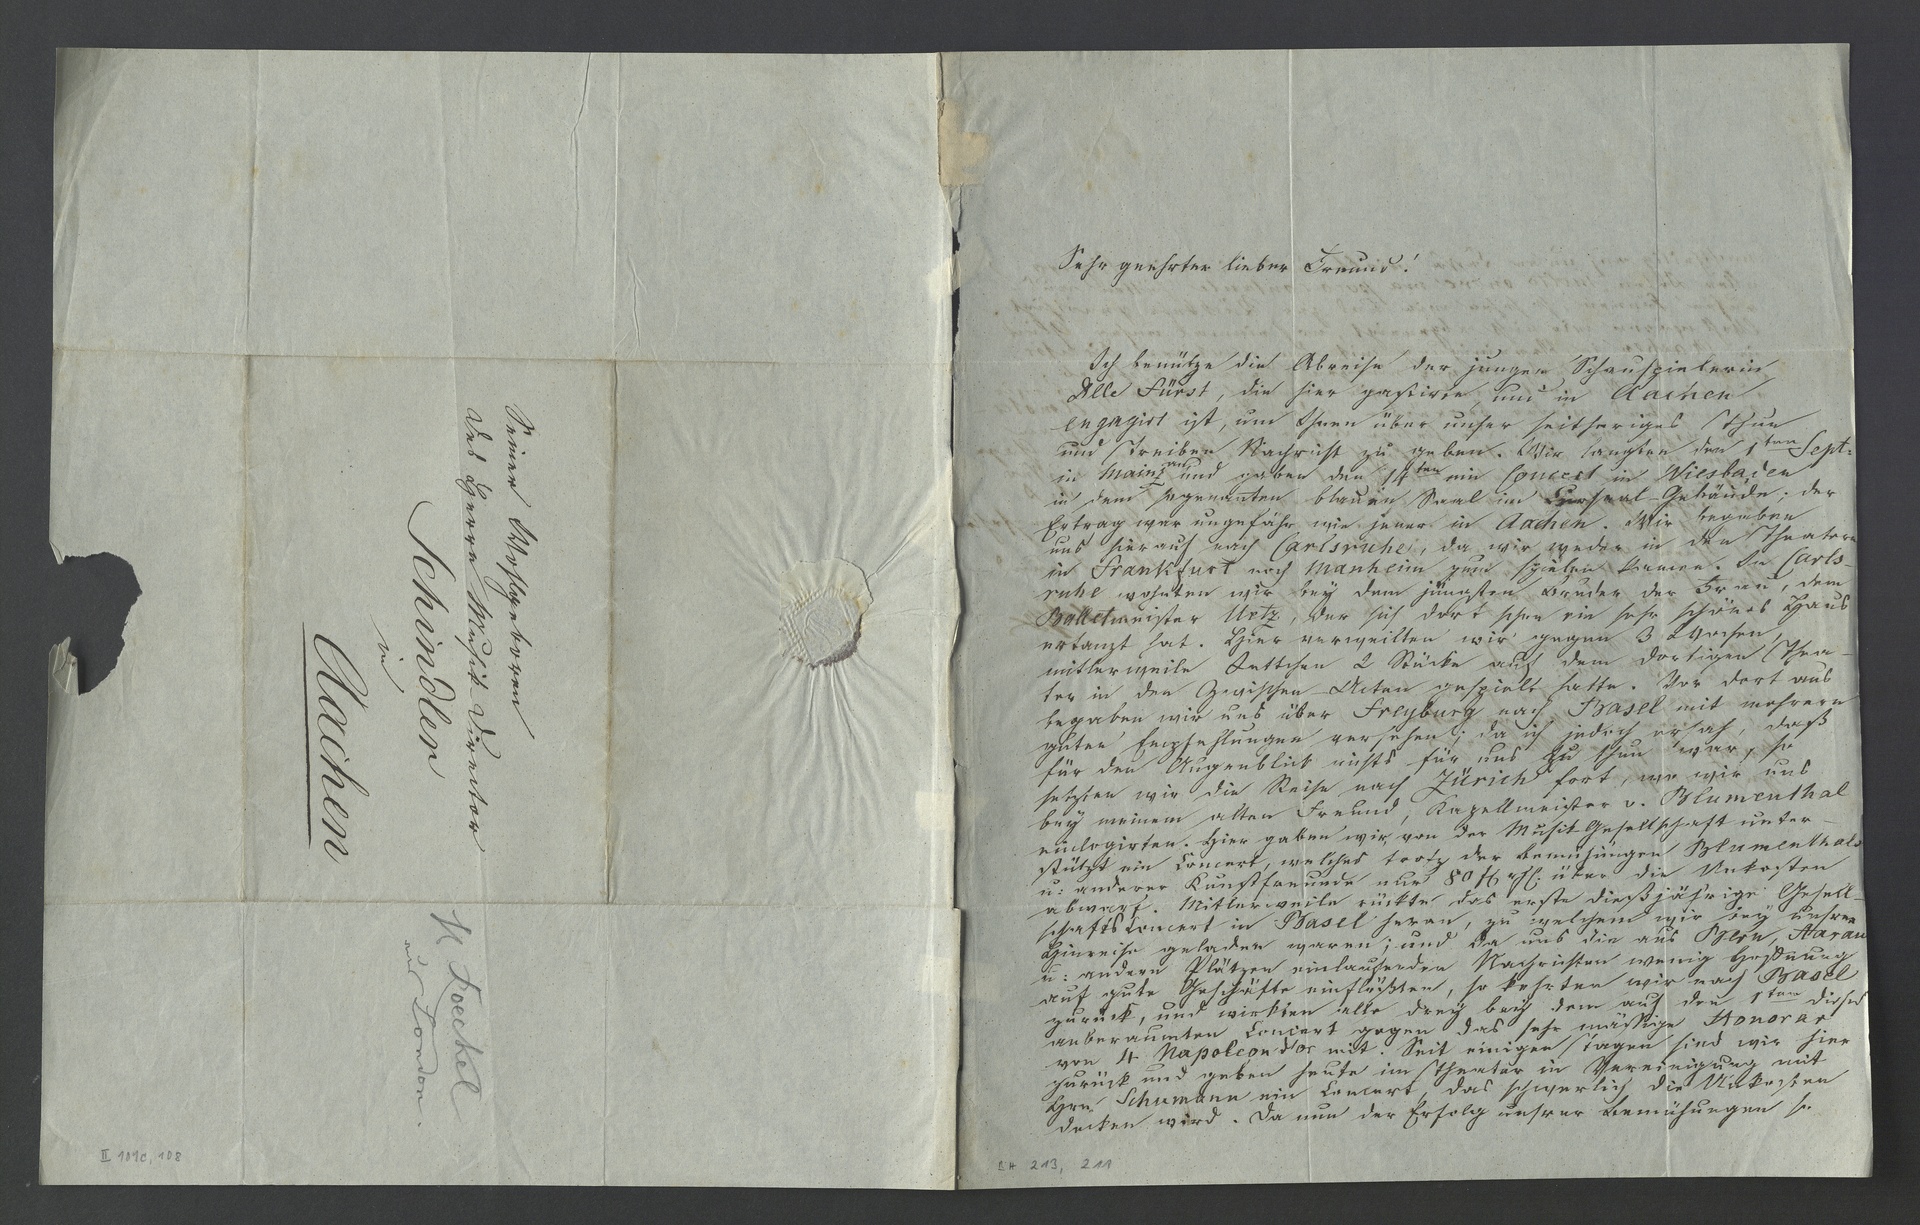 Seiner Wohlgeboren
des Herrn Musik-Director
Schindler
in
Aachen
H. Foeckel
aus London.
II 101c, 108
Sehr geehrter lieber Freund!
Ich benütze die Abreise der jungen Schauspielerin
Dlle Fürst, die hier gastirte, und in Aachen
engagirt ist, um Ihnen über unser seitheriges Thun
und Treiben Nachricht zu geben. Wir langten den 1ten Sept.
in Mainz an und gaben den 14ten ein Concert in Wiesbaden
in dem sogenannten blauen Saal im Cursaal-Gebäude; der
Ertrag war ungefähr wie jener in Aachen. Wir begaben
uns hierauf nach Carlsruhe, da wir weder in den Theatern
in Frankfurt noch Manheim zum spielen kamen. In Carls-
ruhe wohnten wir bey dem jüngsten Bruder der Frau, dem
Balletmeister Uetz, der sich dort schon ein sehr schönes Haus
ertanzt hat. Hier verweilten wir gegen 3 Wochen,
mitlerweile Nettchen 2 Stücke auf dem dortigen Thea-
ter in den Zwischen-Acten gespielt hatte. Von dort aus
begaben wir uns über Freyburg nach Basel mit mehrern
guten Empfehlungen versehen; da ich jedoch ersah, daß
für den Augenblick nichts für uns zu thun war, so
setzten wir die Reise nach Zürich fort, wo wir uns
bey meinem alten Freund, Kapellmeister v. Blumenthal
einlogirten. Hier gaben wir von der Musik-Gesellschaft unter-
stützt ein Concert, welches trotz der Bemühungen Blumenthals
u: anderer Kunstfreunde nur 80 fl über die Unkosten
abwarf. Mitlerweile rückte das erste dießjährige Gesell-
schafts Concert in Basel heran, zu welchem wir bey unsrer
Hinreise geladen waren; und da uns die aus Bern, Aarau
u: andern Plätzen einlaufenden Nachrichten wenig Hoffnung
auf gute Geschäfte einflößten, so kehrten wir nach Basel
zurück, und wirkten alle drey bey dem auf den 1ten dieses
anberaumten Concert gegen das sehr mässige Honorar
von 4 Napoleond'or mit. Seit einigen Tagen sind wir hier
zurück und geben heute im Theater in Vereinigung mit
Hrn Schumann ein Concert, das schwerlich die Unkosten
decken wird. Da nun der Erfolg unsrer Bemühungen so
BH 213, 211